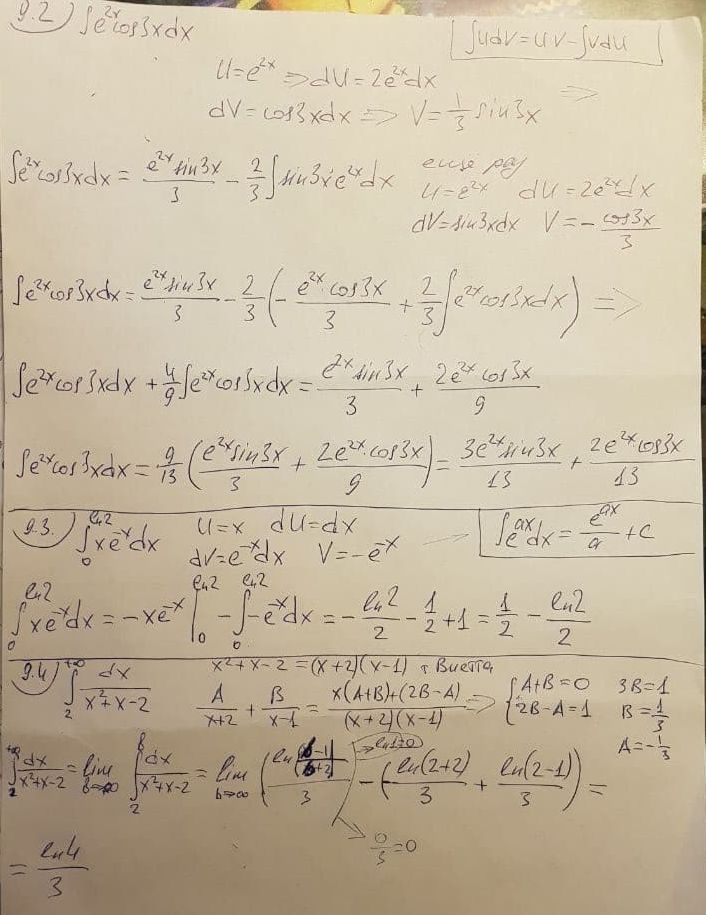 9.2) ∫e^{2x}cos3xdx
∫udV=uV-∫Vdu
U=e^{2x} => dU=2e^{2x}dx =>
dV=cos3xdx => V=1/3 sin3x
∫e^{2x}cos3xdx = e^{2x}sin3x/3 - 2/3 ∫sin3x·e^{2x}dx
U=e^{2x} dU=2e^{2x}dx
dV=sin3xdx V=-cos3x/3
∫e^{2x}cos3xdx = e^{2x}sin3x/3 - 2/3 (-e^{2x}·cos3x/3 + 2/3 ∫e^{2x}cos3xdx) =>
∫e^{2x}cos3xdx + 4/9 ∫e^{2x}cos3xdx = e^{2x}sin3x/3 + 2e^{2x}cos3x/9
∫e^{2x}cos3xdx = 9/13 (e^{2x}sin3x/3 + 2e^{2x}·cos3x/9) = 3e^{2x}sin3x/13 + 2e^{2x}cos3x/13
9.3.) ∫_0^{ln2} xe^{-x}dx U=x dU=dx
dV=e^{-x}dx V=-e^{-x}
∫e^{ax}dx = e^{ax}/a + C
∫_0^{ln2} xe^{-x}dx = -xe^{-x}|_0^{ln2} - ∫_0^{ln2} -e^{-x}dx = -ln2/2 - 1/2 + 1 = 1/2 - ln2/2
9.4) ∫_2^{+∞} dx/(x²+x-2) x²+x-2=(x+2)(x-1) т Виетта
A/(x+2) + B/(x-1) = (x(A+B)+(2B-A))/((x+2)(x-1)) => {A+B=0 3B=1
2B-A=1 B=1/3
A=-1/3
∫_2^{+∞} dx/(x²+x-2) = lim_{b→∞} ∫_2^b dx/(x²+x-2) = lim_{b→∞} (ln((b-1)/(b+2))/3) - (-ln(2+2)/3 + ln(2-1)/3) =
=> ln1=0
0/3=0
= ln4/3